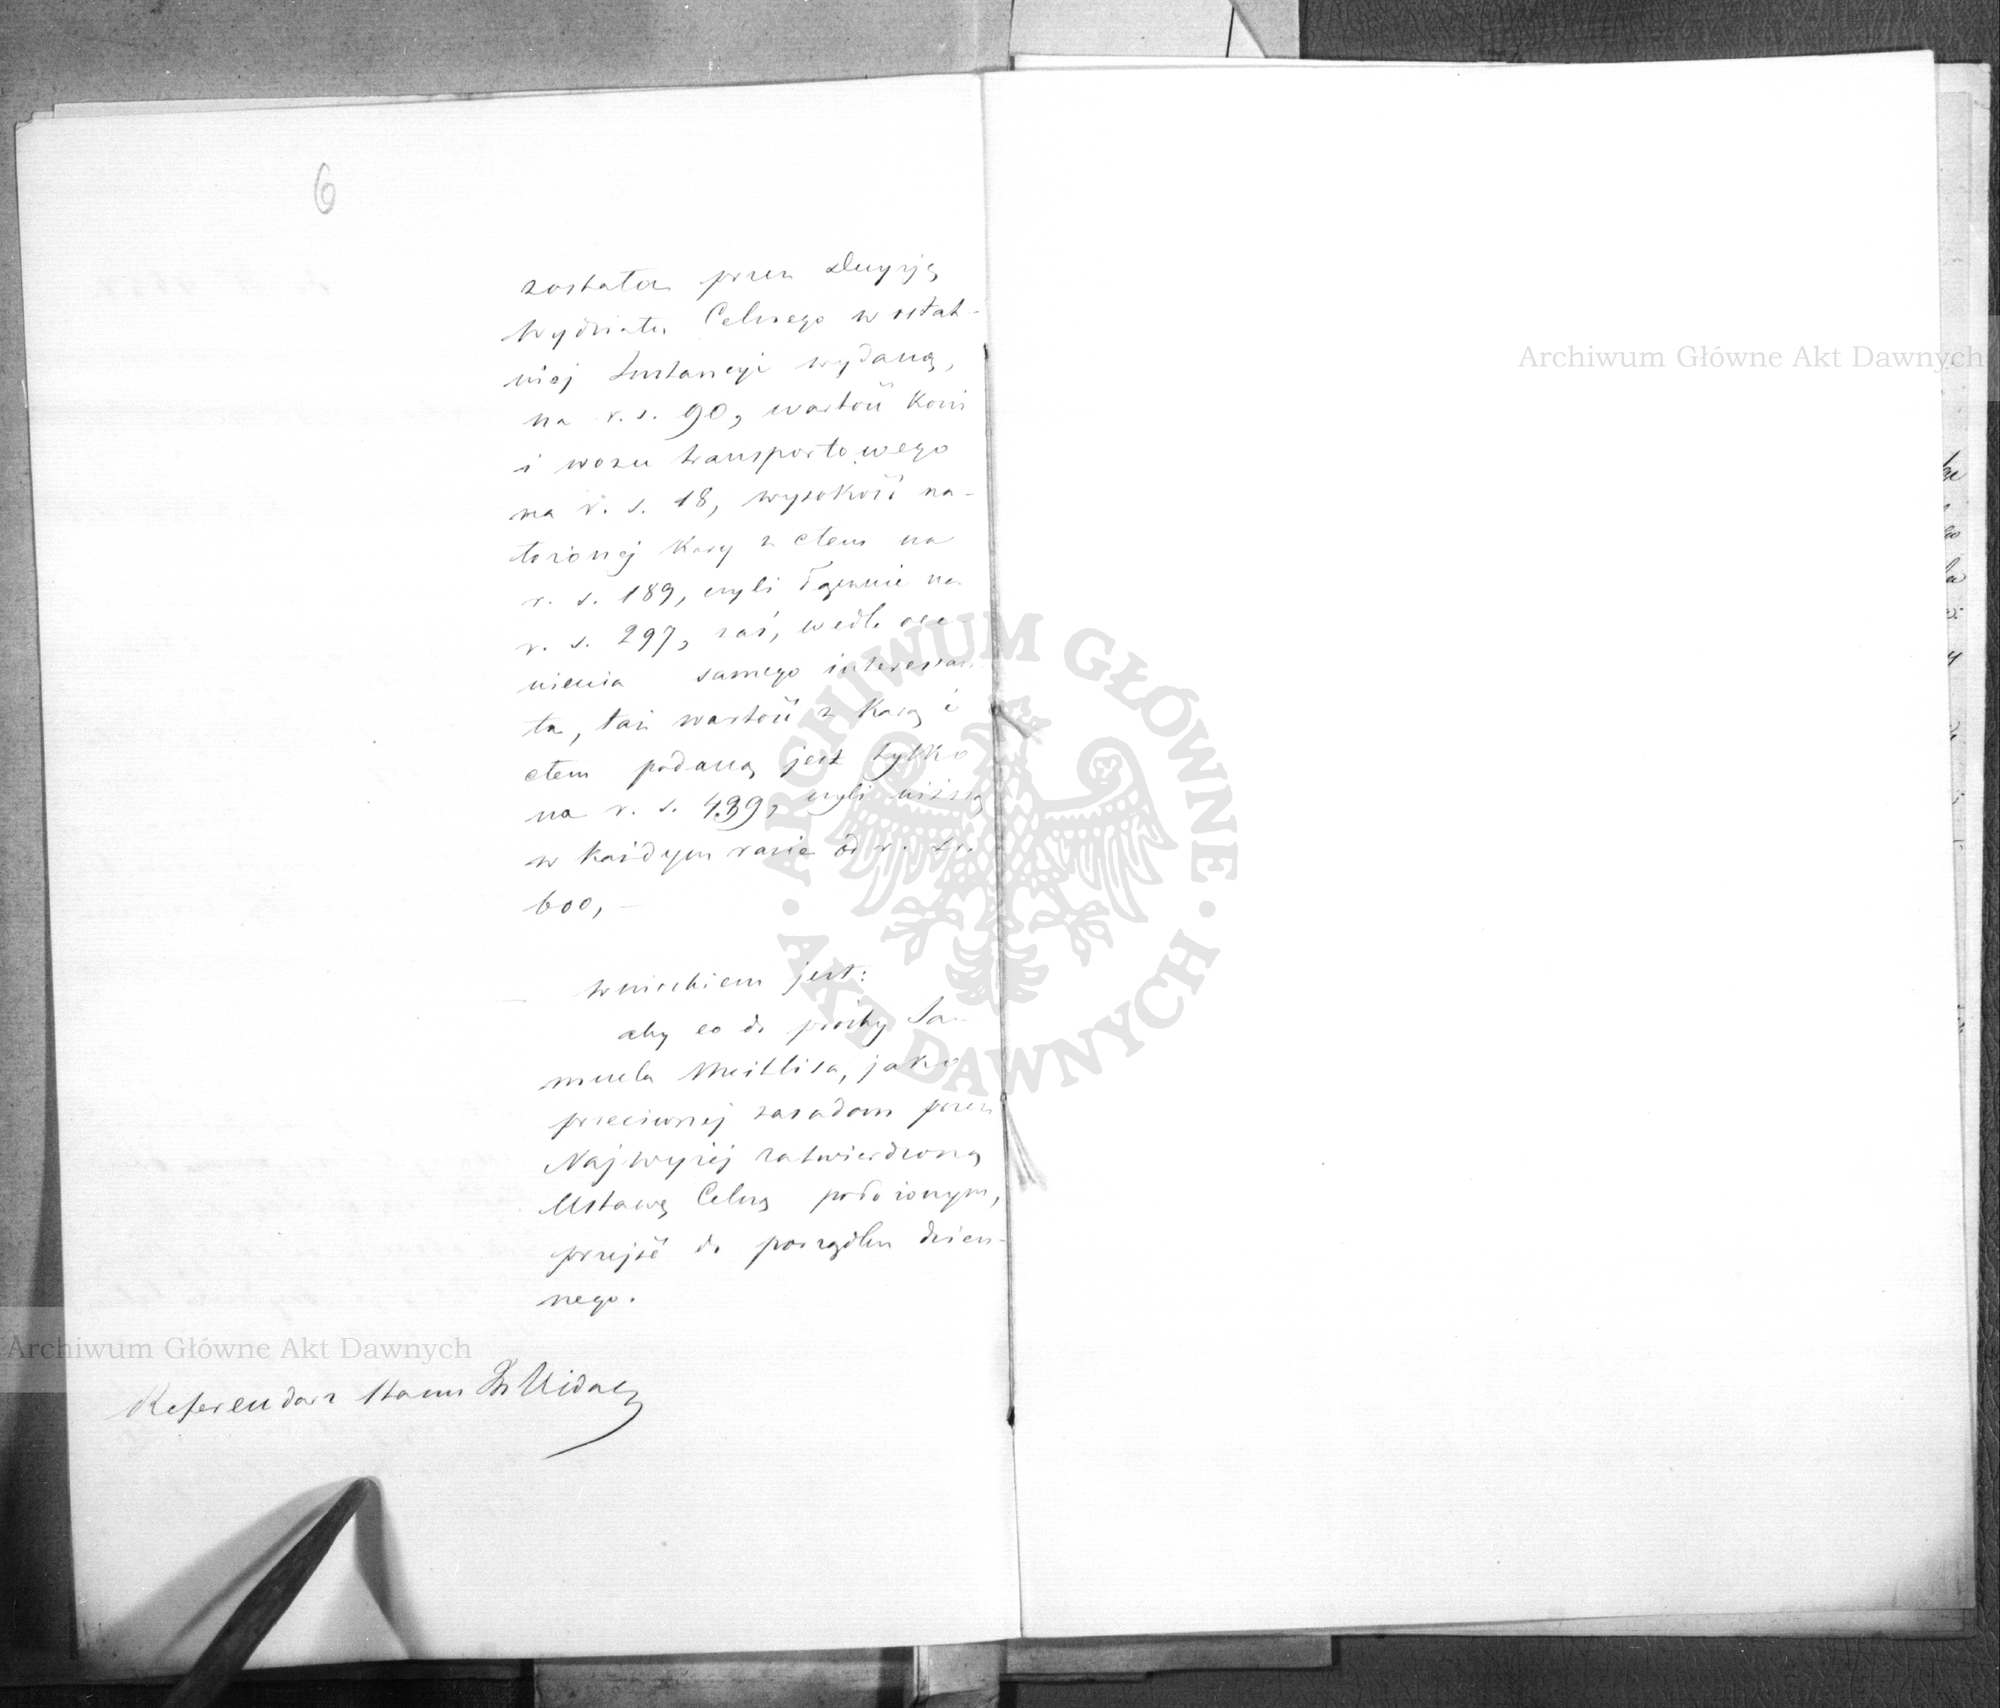 6
została przez Decyzją
Wydziału Celnego w ostat-
niej Instancyi wydaną,
na r. s. 90, wartość koni
i wozu transportowego
na r. s. 18, wysokość na-
łożonej kary z cłem na
r. s. 189, czyli łącznie na
r. s. 297, zaś, wedle oce-
nienia samego interessan-
ta, taż wartość z karą i
cłem podaną jest tylko
na r. s. 439, czyli niższą
w każdym razie od r. sr.
600, –
wnioskiem jest:
aby co do prośby Sa-
muela Meitlisa, jako
przeciwnej zasadom przez
Najwyżej zatwierdzoną
Ustawę Celną położonym,
przejść do porządku dzien-
nego.
Referendarz Stanu
Archiwum Główne Akt Dawnych
Archiwum Główne Akt Dawnych
ARCHIWUM GŁÓWNE
AKT DAWNYCH